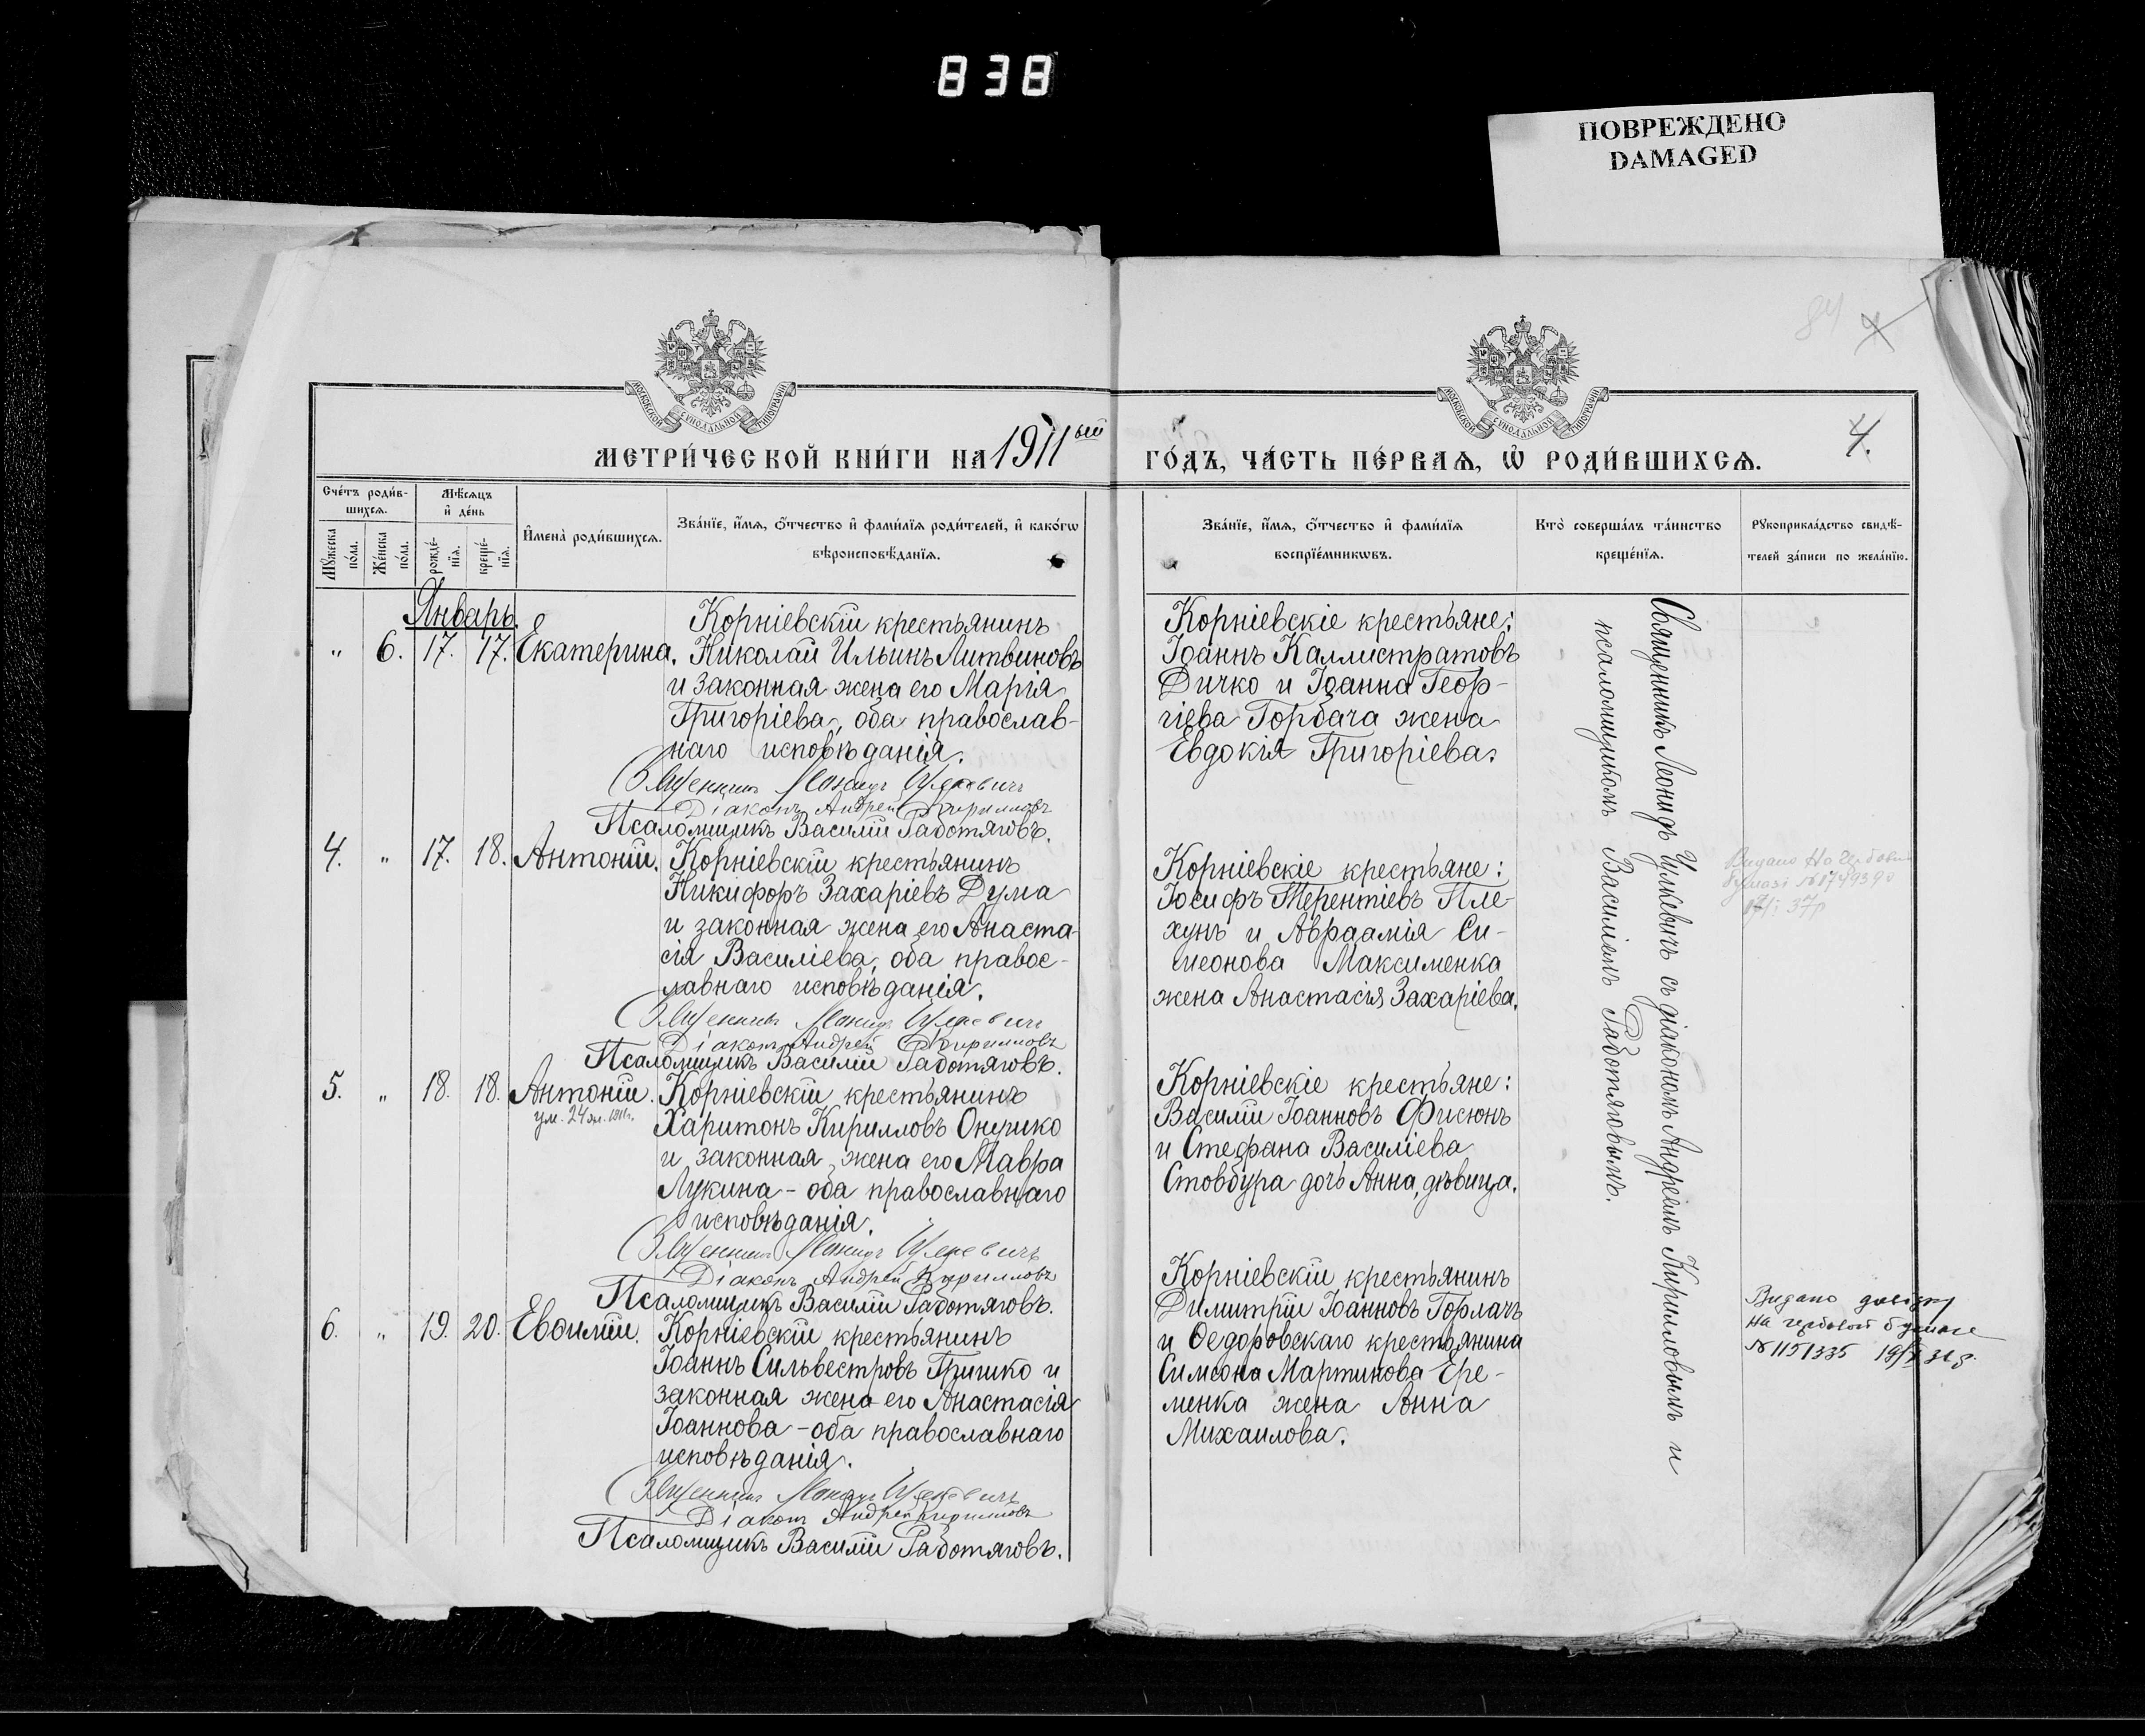 838
ПОВРЕЖДЕНО
DAMAGED
84
4
МОСКОВСКОЙ СѴНОДАЛЬНОЙ ТИПОГРАФІИ
МОСКОВСКОЙ СѴНОДАЛЬНОЙ ТИПОГРАФІИ
МЕТРИ́ЧЕСКОЙ КНИ́ГИ НА 1911ый
ГО́ДЪ, ЧА́СТЬ ПЕ́РВАЯ, Ѡ҆ РОДИ́ВШИХСЯ.
4.
Сче́тъ роди́в-
шихся.
Мѣ́сяцъ
и҆ де́нь
Мꙋ́жеска
по́ла.
Же́нска
по́ла.
рожде́-
нїя.
креще́-
нїя.
И҆мена̀ роди́вшихся.
Зва́нїе, и҆́мя, ѻ҆́тчество и҆ фами́лїя роди́телей, и҆ како́гѡ
вѣроисповѣ́данїя.
Зва́нїе, и҆́мя, ѻ҆́тчество и҆ фами́лїя
воспрїе́мникѡвъ.
Кто̀ соверша́лъ та́инство
креще́нїя.
Рꙋкоприкла́дство свидѣ́-
телей за́писи по жела́нїю.
Январь.
" 6. 17. 17. Екатерина.
Корніевскій крестьянинъ
Николай Ильинъ Литвиновъ
и законная жена его Марія
Григоріева, оба православ-
наго исповѣданія.
Священникъ Леонидъ Улкевичъ
Діаконъ Андрей Кирилловъ
Псаломщикъ Василій Работяговъ.
Корніевскіе крестьяне:
Іоаннъ Каллистратовъ
Дичко и Іоанна Геор-
гіева Горбача жена
Евдокія Григоріева.
4. " 17. 18. Антоній.
Корніевскій крестьянинъ
Никифоръ Захаріевъ Дума
и законная жена его Анаста-
сія Василіева, оба правос-
лавнаго исповѣданія.
Священникъ Леонидъ Улкевичъ
Діаконъ Андрей Кирилловъ
Псаломщикъ Василій Работяговъ.
Корніевскіе крестьяне:
Іосифъ Терентіевъ Пле-
хунъ и Авраамія Си-
меонова Максименка
жена Анастасія Захаріева.
Видано На Гербовій
бумазі № 1749390
37р
5. " 18. 18. Антоній.
ум. 24 ян. 1911г.
Корніевскій крестьянинъ
Харитонъ Кирилловъ Онушко
и законная жена его Мавра
Лукина - оба православнаго
исповѣданія.
Священникъ Леонидъ Улкевичъ
Діаконъ Андрей Кирилловъ
Псаломщикъ Василій Работяговъ.
Корніевскіе крестьяне:
Василій Іоанновъ Фисюнъ
и Стефана Василіева
Стовбура дочь Анна, дѣвица.
6. " 19. 20. Евѳимій.
Корніевскій крестьянинъ
Іоаннъ Сильвестровъ Гришко и
законная жена его Анастасія
Іоаннова - оба православнаго
исповѣданія.
Священникъ Леонидъ Улкевичъ
Діаконъ Андрей Кирилловъ
Псаломщикъ Василій Работяговъ.
Корніевскій крестьянинъ
Димитрій Іоанновъ Горлачъ
и Ѳедоровскаго крестьянина
Симеона Мартинова Ере-
менка жена Анна
Михаилова.
Видано довідку
на гербовой бумаге
№ 1151335
Священникъ Леонидъ Улкевичъ съ діакономъ Андреемъ Кирилловымъ и
псаломщикомъ Василіемъ Работяговымъ.